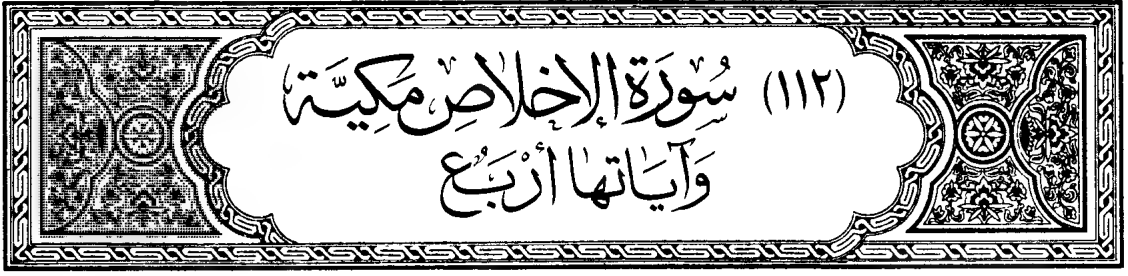 (١١٢) سُورَة الإخلاصِ مَكيَّة
وَآيَاتها أرْبَعُ